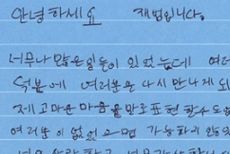 안녕하세요 재범입니다.
너무나 많은 일들이 있었는데 여러
덕분에 여러분을 다시 만나게 되
제 고마운 마음을 말로 표현할수도
여러분이 없었으면 가능하지 않았